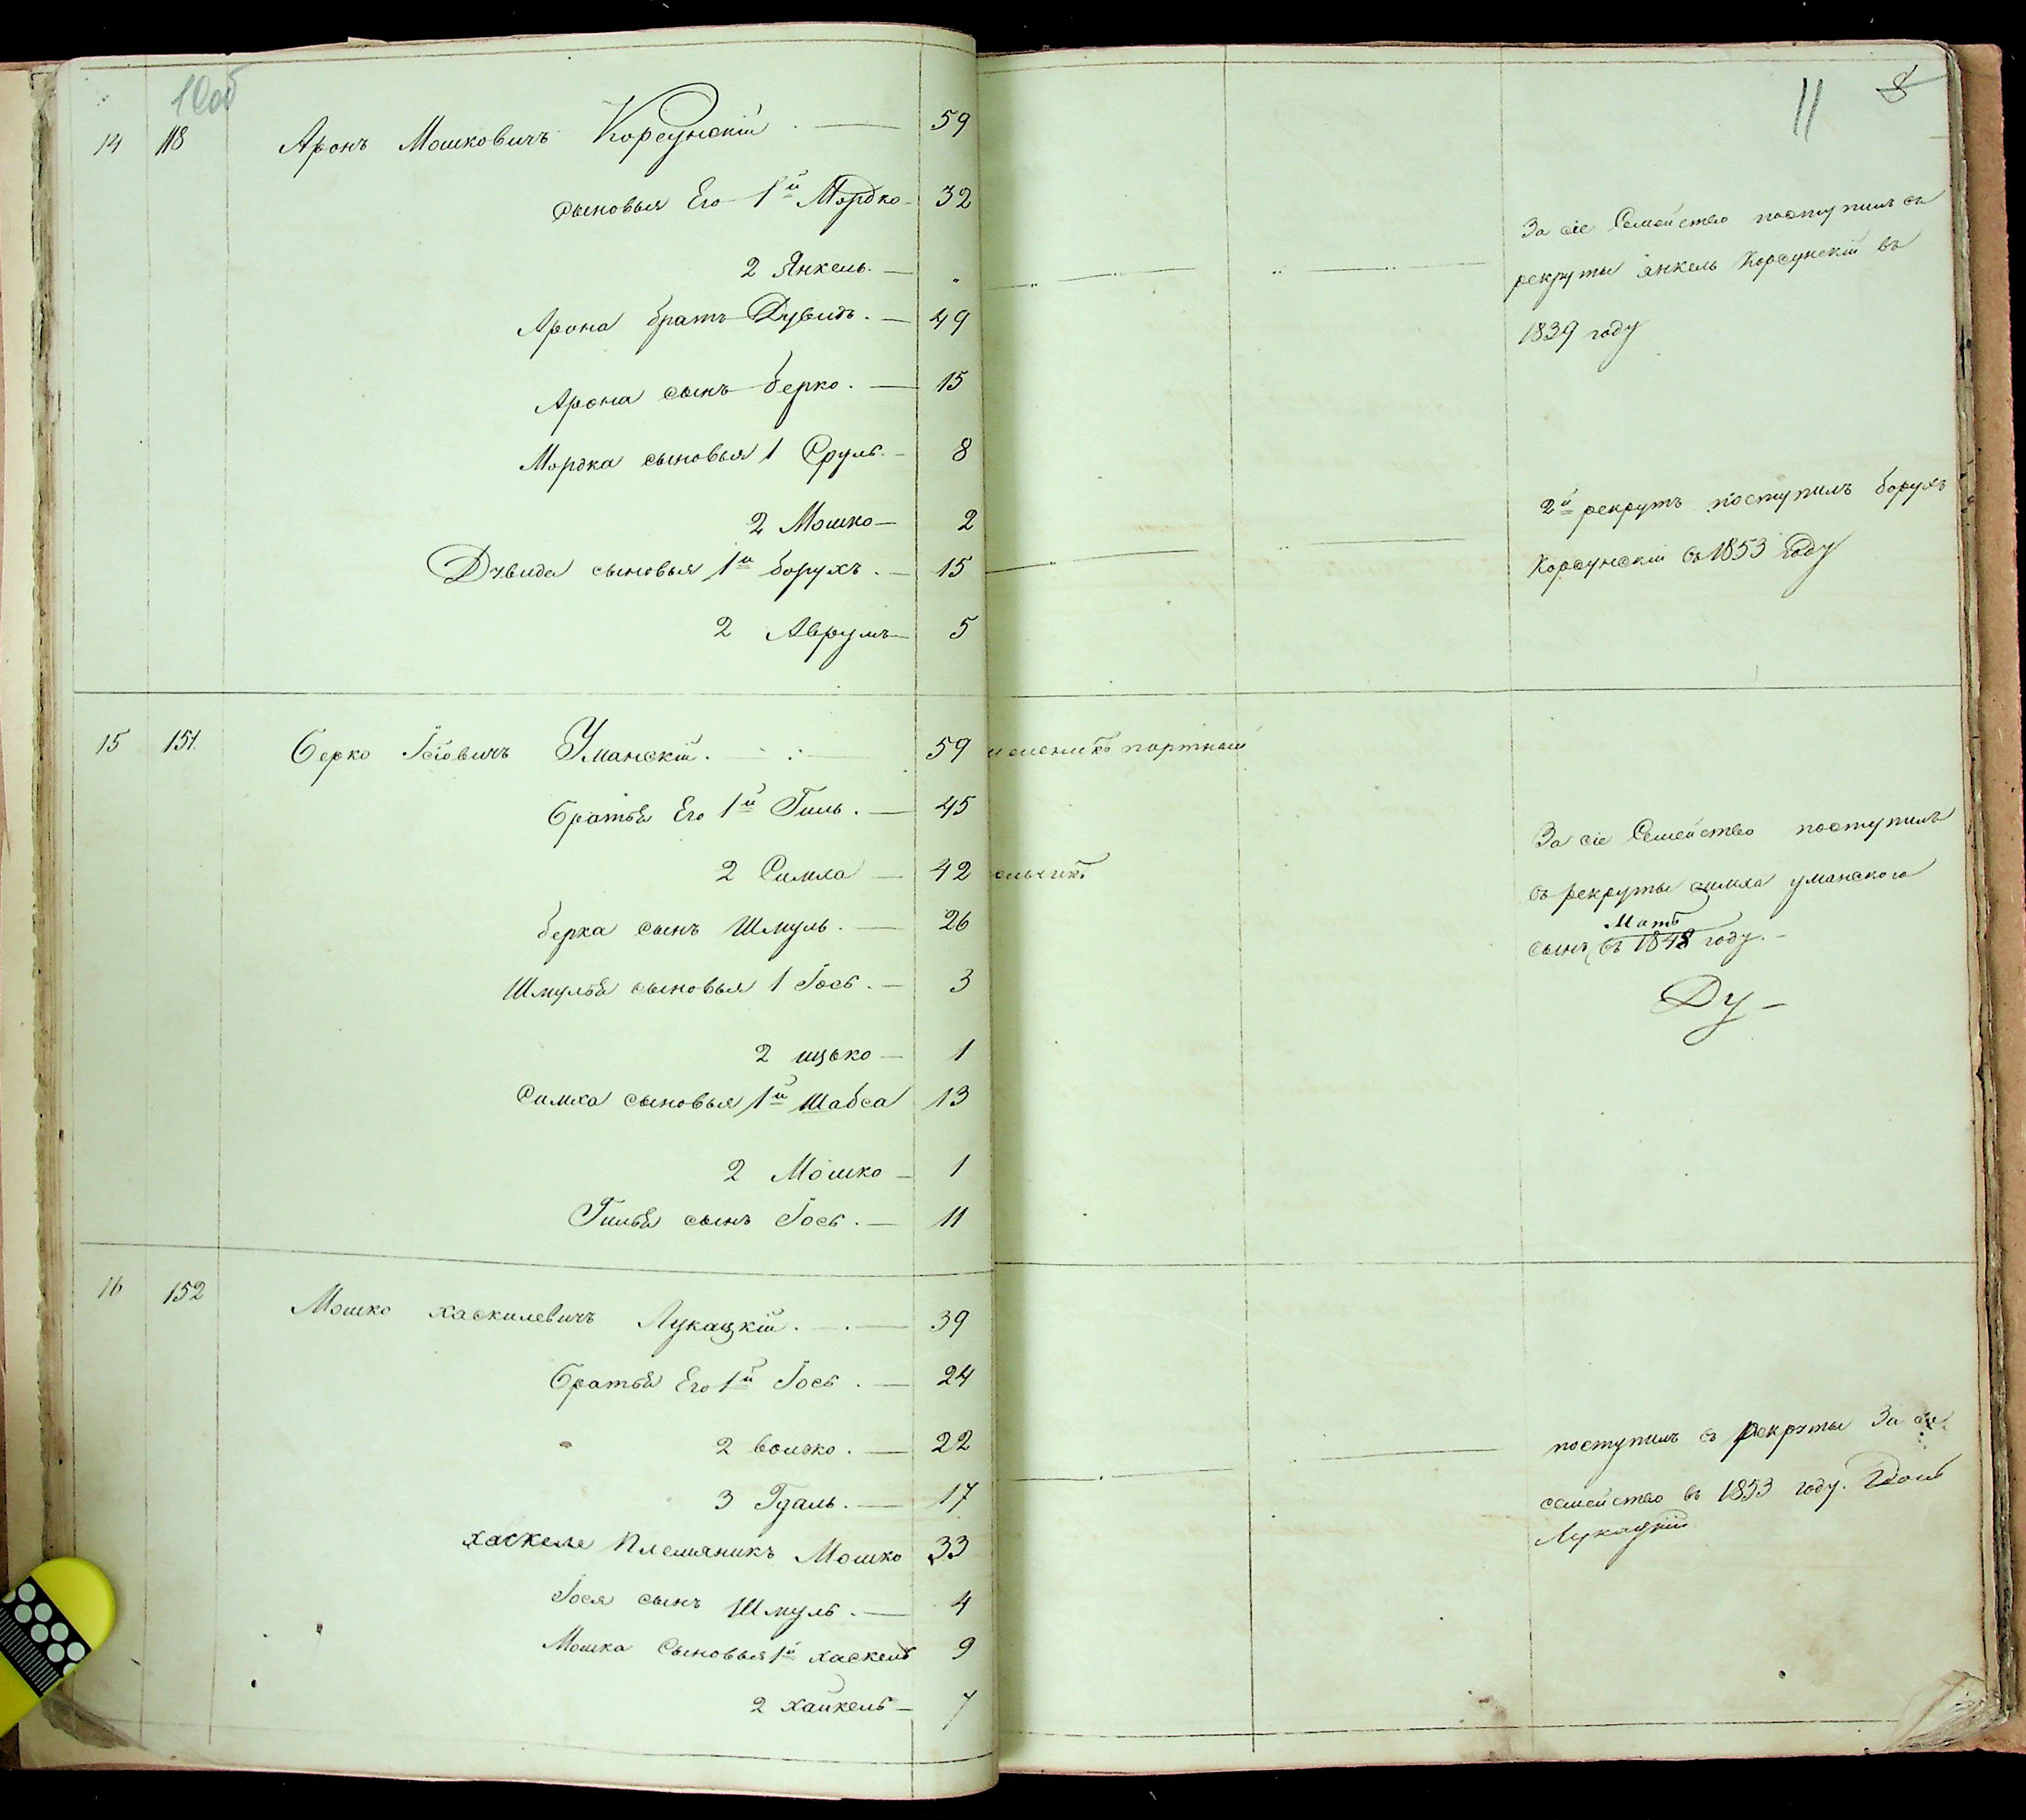 10об
14 118 Аронъ Мошковичъ Корсунскій 59
сыновья Его 1й Мордко 32
2 Янкель
Арона братъ Дувидъ 49
Арона сынъ берко 15
Мордка сыновья 1 Сруль 8
2 Мошко 2
Дувида сыновья 1й борухъ 15
2 Аврумъ 5
15 151 Берко Іосіовичъ Уманскій 59
братья Его 1й Гиль 45
2 Симха 42
берка сынъ Шмуль 26
Шмуля сыновья 1 Іось 3
2 ицько 1
Симха сыновья 1й Шабса 13
2 Мошко 1
Гиля сынъ Іось 11
16 152 Мошко хаскилевичъ Лукацкій 39
братья Его 1й Іось 24
2 волько 22
3 Гдаль 17
хаскеля Племяникъ Мошко 33
Іося сынъ Шмуль 4
Мошка Сыновья 1й хаскель 9
2 хайкель 7
11 8
За сіе Семейство поступилъ въ
рекруты янкель Корсунскій въ
1839 году
2й рекрутъ поступилъ борухъ
Корсунскій въ 1853 году
портной
За сіе Семейство поступилъ
въ рекруты симха уманского
Мать
сынъ въ 1848 году.
Ду
поступилъ въ рекруты За сіе
семейство въ 1853 году.
Лукацкій